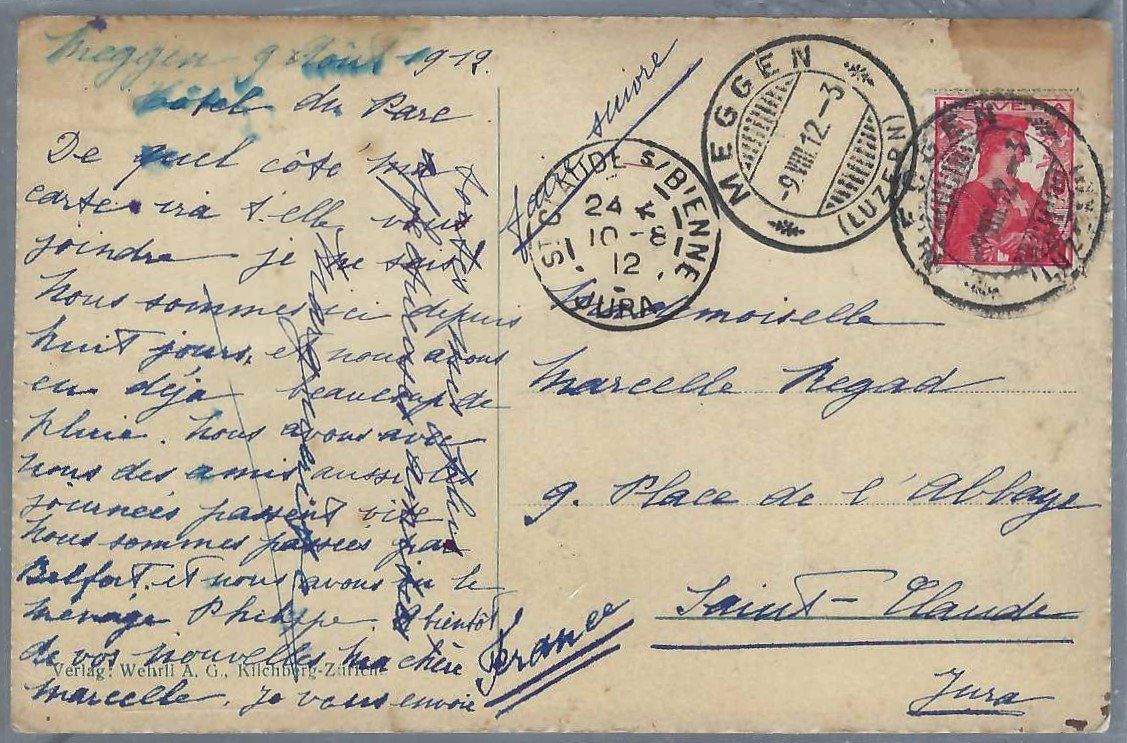 Meggen 9 Août 1912.
Hôtel du Parc
De quel côté ma
carte ira t-elle vous
joindre je ne sais
Nous sommes ici depuis
huit jours. et nous avons
eu déjà beaucoup de
pluie. Nous avons avec
nous des amis aussi les
journées passent vite
Nous sommes passées par
Belfort. et nous avons vu le
ménage Philippe. A bientôt
de vos nouvelles ma chère
Marcelle. Je vous envoie
à tous mes plus
Verlag: Wehrli A. G., Kilchberg-Zürich
faire suivre
MEGGEN
-9.VIII.12.-3
(LUZERN)
ST CLAUDE S/BIENNE
24 *
10-8
12
JURA
HELVETIA
MEGGEN
(LUZERN)
Mademoiselle
Marcelle Regad
9. Place de l'Abbaye
Saint-Claude
Jura
France